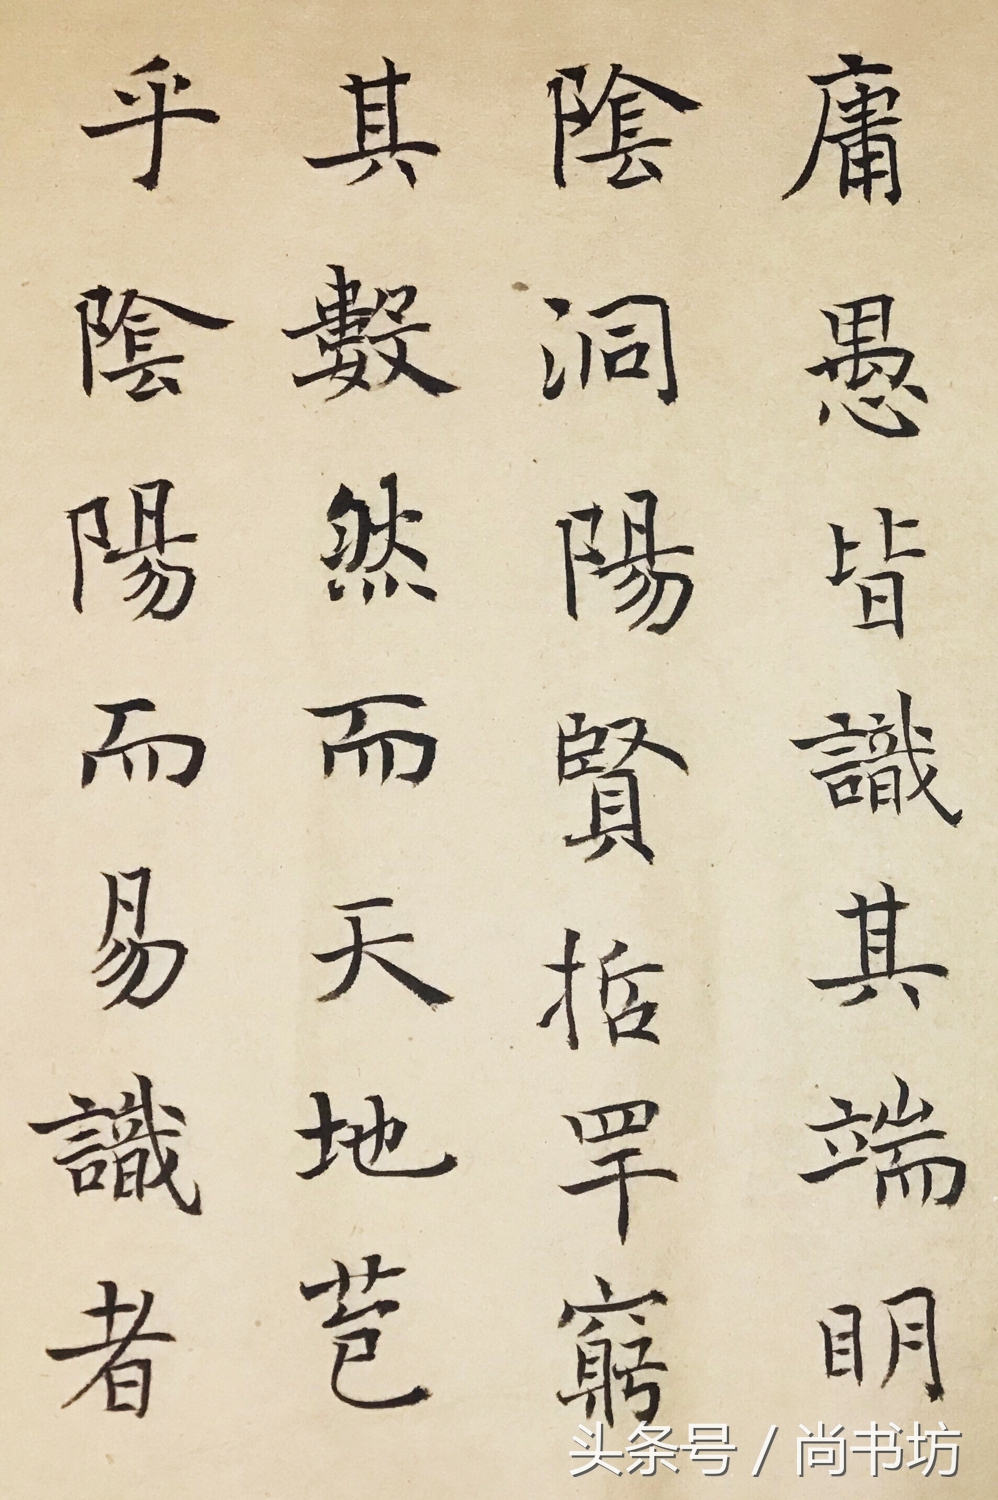 庸愚皆識其端明
陰洞陽賢哲罕窮
其數然而天地苞
乎陰陽而易識者
头条号 / 尚书坊